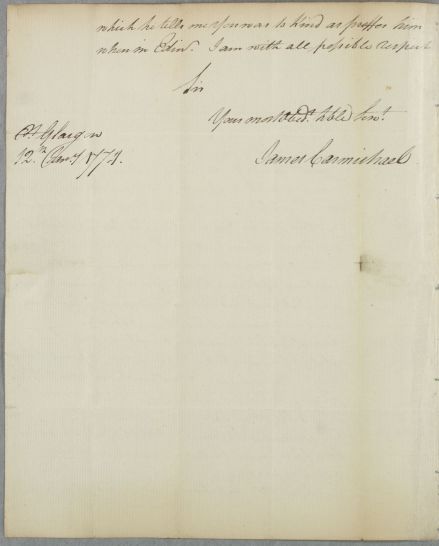 which he tells me You was so kind as proffer him
when in Edinr. I am with all possible respect
Sir
Your most Obedt. hble Servt.
Pt Glasgow
12th 1771.
James Carmichael